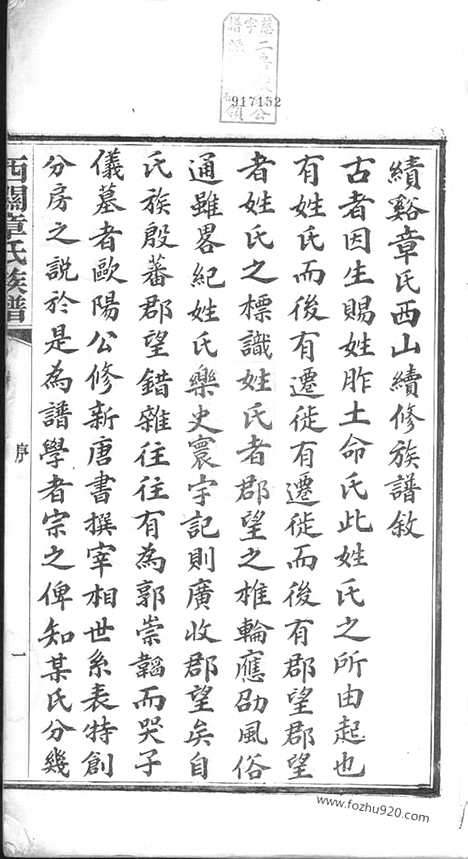 績谿章氏西山續修族譜敘
古者因生賜姓胙土命氏此姓氏之所由起也
有姓氏而後有遷徙有遷徙而後有郡望郡望
者姓氏之標識姓氏者郡望之椎輪應劭風俗
通雖畧紀姓氏樂史寰宇記則廣收郡望矣自
氏族殷蕃郡望錯雜往往有為郭崇韜而哭子
儀墓者歐陽公修新唐書撰宰相世系表特創
分房之說於是為譜學者宗之俾知某氏分幾
西關章氏族譜
序
一
917152
www.fozhu920.com